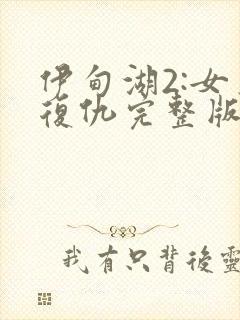 伊甸湖2:女
復仇完整版
我有只背後靈